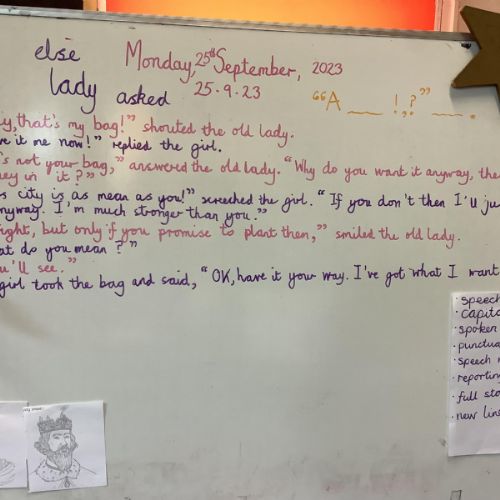 else
Monday, 25th September, 2023
lady asked
25.9.23
"A ___ !,?" ___.
that's my bag!" shouted the old lady.
it me now!" replied the girl.
not your bag," answered the old lady. "Why do you want it anyway,
in it?"
city is as mean as you!" screeched the girl. "If you don't then I'll
I'm much stronger than you."
but only if you promise to plant then," smiled the old lady.
do you mean?"
see."
girl took the bag and said, "OK, have it your way. I've got what I want
· speech
· spoken
· speech
· full
· new